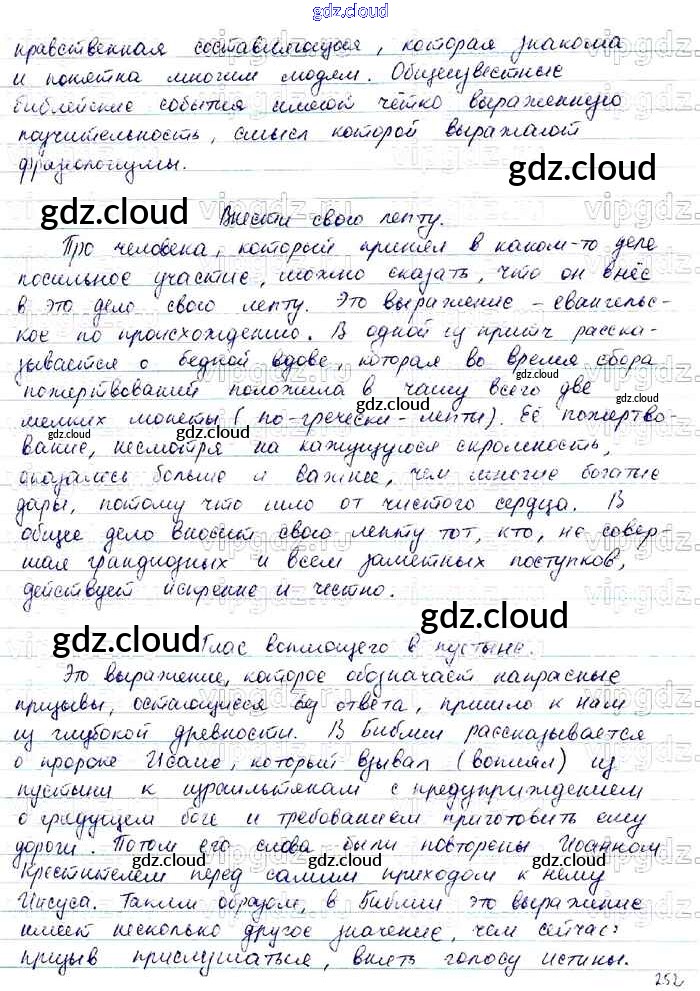 gdz.cloud
нравственная составляющая, которая знакома
и понятна многим людям. Общеизвестные
библейские события имеют чётко выраженную
поучительность, смысл которой выражают
фразеологизмы.
gdz.cloud
gdz.cloud
Внести свою лепту.
Про человека, который принял в каком-то деле
посильное участие, можно сказать, что он внёс
в это дело свою лепту. Это выражение – евангельс-
кое по происхождению. В одной из притч расска-
зывается о бедной вдове, которая во время сбора
gdz.cloud
пожертвований положила в чашу всего две
gdz.cloud
мелких монеты (по-гречески - лепты). Её пожертво-
gdz.cloud gdz.cloud
вание, несмотря на кажущуюся скромность,
gdz.cloud
оказалось больше и важнее, чем многие богатые
дары, потому что шло от чистого сердца. В
общее дело вносит свою лепту тот, кто, не совер-
шая грандиозных и всем заметных поступков,
действует искренне и честно.
gdz.cloud
gdz.cloud
Глас вопиющего в пустыне.
Это выражение, которое обозначает напрасные
призывы, остающиеся без ответа, пришло к нам
из глубокой древности. В Библии рассказывается
о пророке Исайе, который взывал (вопиял) из
пустыни к израильтянам с предупреждением
о грядущем боге и требованием приготовить ему
дороги. Потом его слова были повторены Иоанном
gdz.cloud gdz.cloud gdz.cloud
Крестителем перед самим приходом к нему
Иисуса. Таким образом, в Библии это выражение
имеет несколько другое значение, чем сейчас:
призыв прислушаться, внять голосу истины.
252